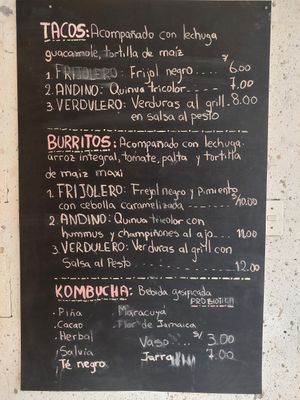 TACOS: Acompañado con lechuga
guacamole, tortilla de maíz
S/
1. FRIJOLERO: Frijol negro.... 6.00
2. ANDINO: Quinua tricolor.... 7.00
3 VERDULERO: Verduras al grill. 8.00
en salsa al pesto
BURRITOS: Acompañado con lechuga
arroz integral, tomate, palta y tortilla
de maiz maxi
1. FRIJOLERO: Frejol negro y pimiento
con cebolla caramelizada ..... S/10.00
2. ANDINO: Quinua tricolor con
hummus y champiñones al ajo... 11.00
3 VERDULERO: Verduras al grill con
Salsa al Pesto ........ 12.00
KOMBUCHA: Bebida gasificada
PROBIOTICA
. Piña Maracuyá
. Cacao Flor de Jamaica
. Herbal Vaso S/ 3.00
. Salvia Jarra 7.00
Té negro